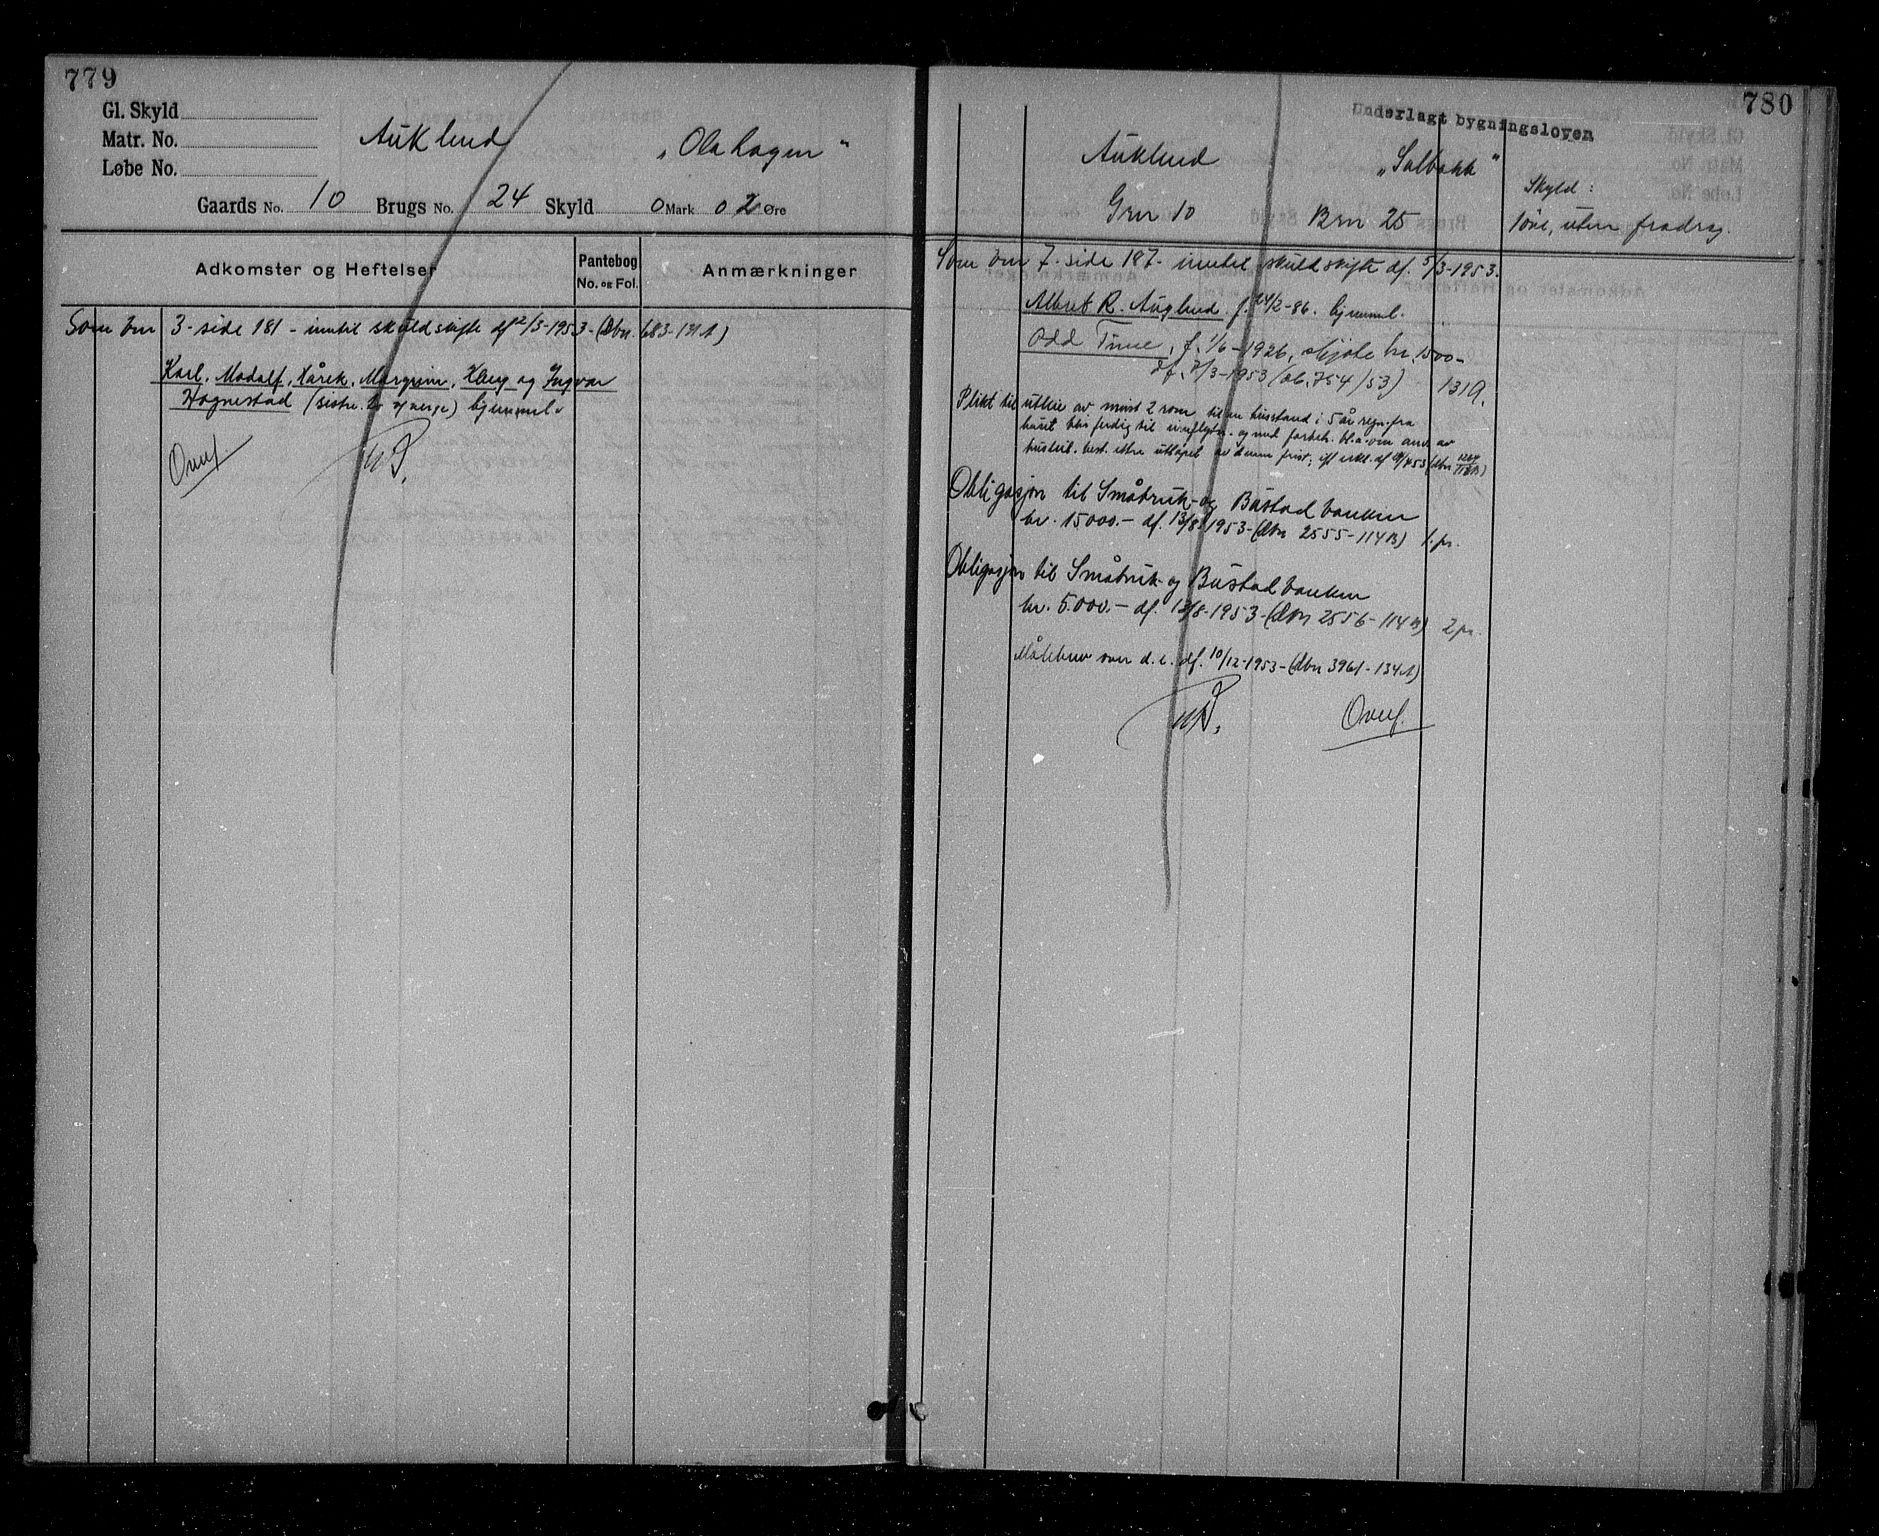 779
Gl. Skyld
Matr. No.
Løbe No.
Auklend „Olahagen"
Gaards No. 10 Brugs No. 24 Skyld 0 Mark 02 Øre
Adkomster og Heftelser
Pantebog No. og Fol.
Anmærkninger
Som bnr 3 - side 181 - inntil skuldskifte df 12/3-1953 - (Dbn. 683-131A)
Karl, Modolf, Hårek, Margrim, og Ingvar
Hognestad hjemmel.
Overf.
780
Underlagt bygningsloven
Auklend „Solbakk"
Skyld:
Gnr 10 Bnr 25 1 øre, uten fradrag.
Som bnr 7 - side 187 - inntil skuldskifte df. 5/3-1953.
Albret R. Auglend f. 24/2-86. hjemmel.
Odd Time, f. 1/6-1926, skjøte kr. 1500-
df. /3-1953 (db. 754/53) 131A.
Plikt til utleie av minst 2 rom til en husstand i 5 år regn. fra
huset blir ferdig til innflytn. og med forbeh. bl.a. om anv. av
husleil. best. etter utløpet av denne frist, ifl erkl. df 9/4 53 (dbn
Obligasjon til Småbruk- og Bustadbanken
kr. 15000.- df. 13/8-1953 - (dbn 2555-114B) 1. pr.
Obligasjon til Småbruk- og Bustadbanken
kr. 5.000.- df. 13/8-1953 - (dbn 2556-114B) 2 pr.
Målebrev over d. e. df. 10/12-1953 - (dbn 3961-134A)
Overf.